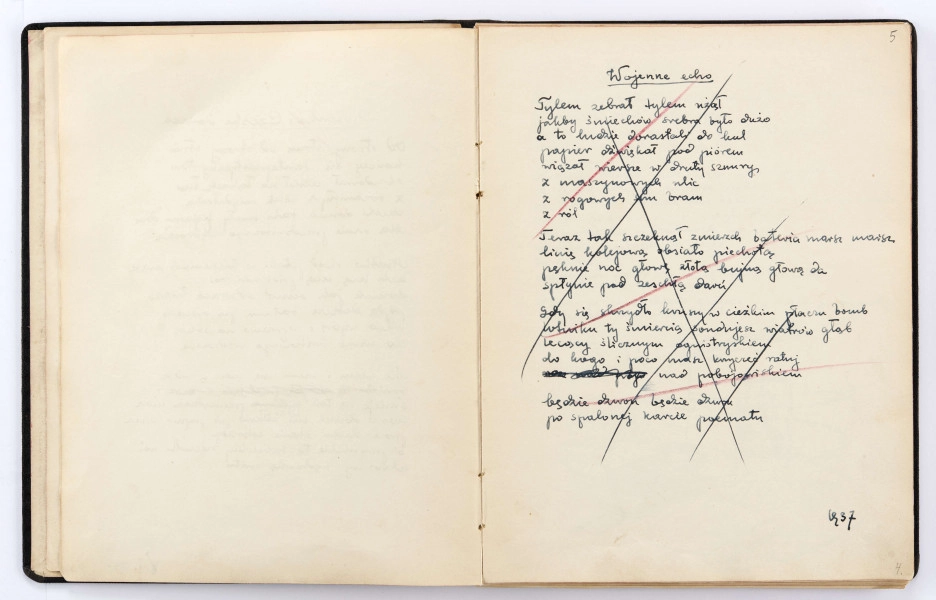 5
Wojenne echo
Tylem zebrał tylem zżął
jakby śmiechów srebra było dużo
a to ludzie dorastali do kul
papier dźwiękał pod piórem
wiązał wiersze w druty sznury
z maszynowych ulic
z rogowych bram
z ról
Teraz tak szczeknął zmierzch bateria marsz marsz
linię kolejową obsiało piechotą
pęknie noc głową złotą bujną głową
spłynie pod zeschłą darń
Gdy się skrzydło kruszy w ciężkim płaczu bomb
lotniku ty śmiercią sondujesz wiatrów głąb
lecący ślicznym ognistryskiem
do kogo i poco masz krzyczeć ratuj
nad pobojowiskiem
będzie dzwon będzie dzwon
po spalonej karcie poematu
1937
4.